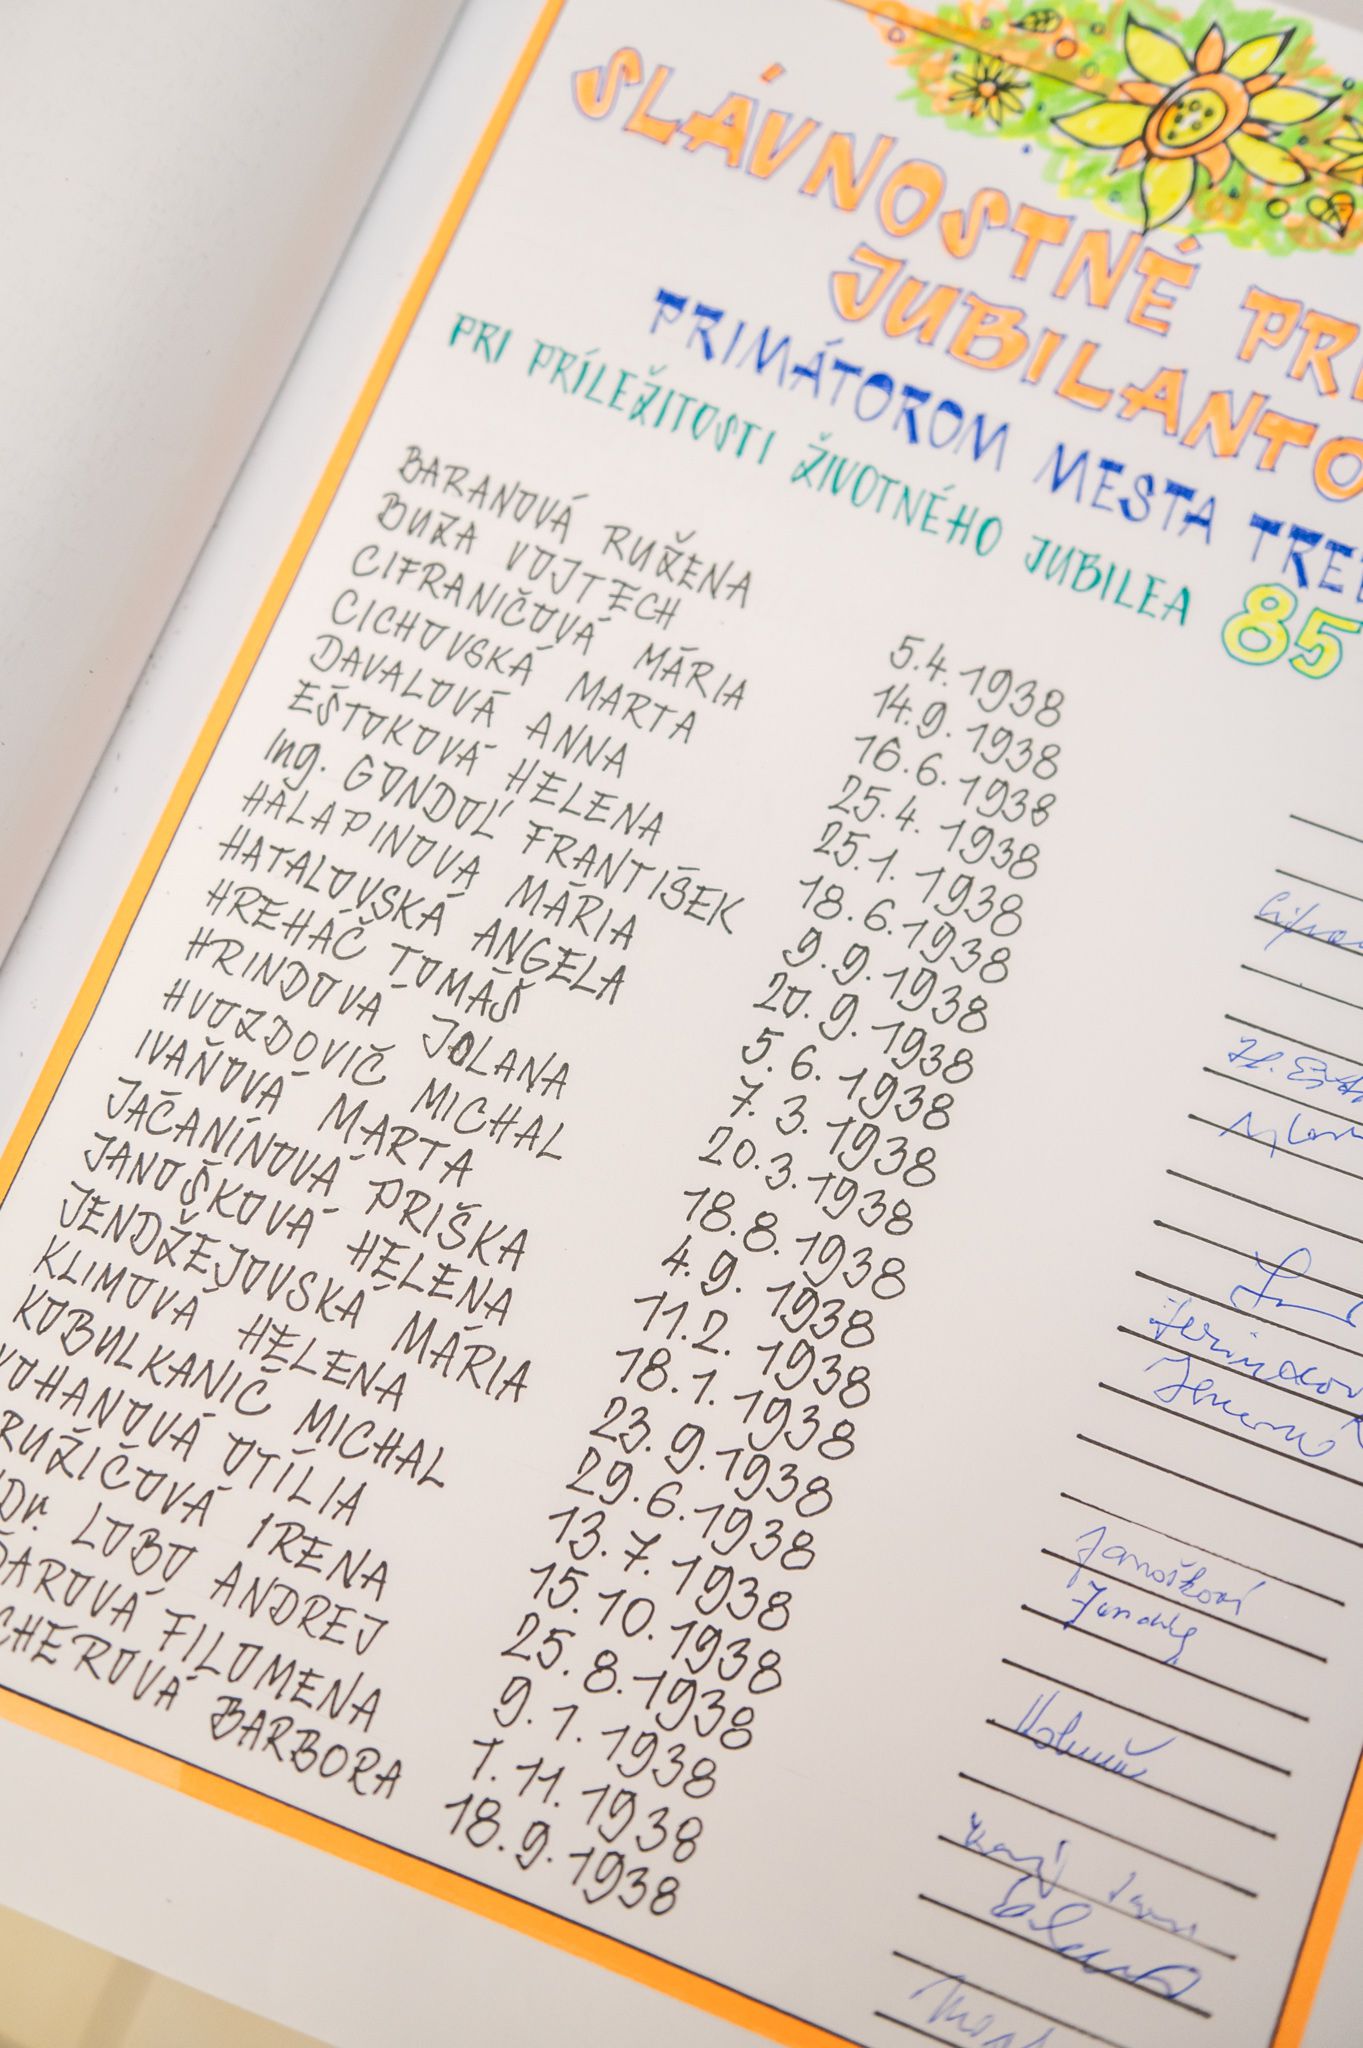 SLÁVNOSTNÉ PRI
JUBILANTO
PRIMÁTOROM MESTA TREB
PRI PRÍLEŽITOSTI ŽIVOTNÉHO JUBILEA 85
BARANOVÁ RUŽENA 5.4.1938
BUZA VOJTECH 14.9.1938
CIFRANIČOVÁ MÁRIA 16.6.1938
CICHOVSKÁ MARTA 25.4.1938
DAVALOVÁ ANNA 25.1.1938
EŠTOKOVÁ HELENA 18.6.1938
Ing. GONDOĽ FRANTIŠEK 9.9.1938
HALAPINOVÁ MÁRIA 20.9.1938
HATALOVSKÁ ANGELA 5.6.1938
HREHÁČ TOMÁŠ 7.3.1938
HRINDOVÁ JOLANA 20.3.1938
HVOZDOVIČ MICHAL 18.8.1938
IVAŇOVÁ MARTA 4.9.1938
JAČANÍNOVÁ PRIŠKA 11.2.1938
JANOŠKOVÁ HELENA 18.1.1938 Janošková
JENDŽEJOVSKÁ MÁRIA 23.9.1938
KLIMOVÁ HELENA 29.6.1938
KOBULKANIČ MICHAL 13.7.1938
KOHANOVÁ OTÍLIA 15.10.1938
RUŽIČOVÁ IRENA 25.8.1938
Dr. LOBO ANDREJ 9.1.1938
ŠAROVÁ FILOMENA 1.11.1938
CHEROVÁ BARBORA 18.9.1938